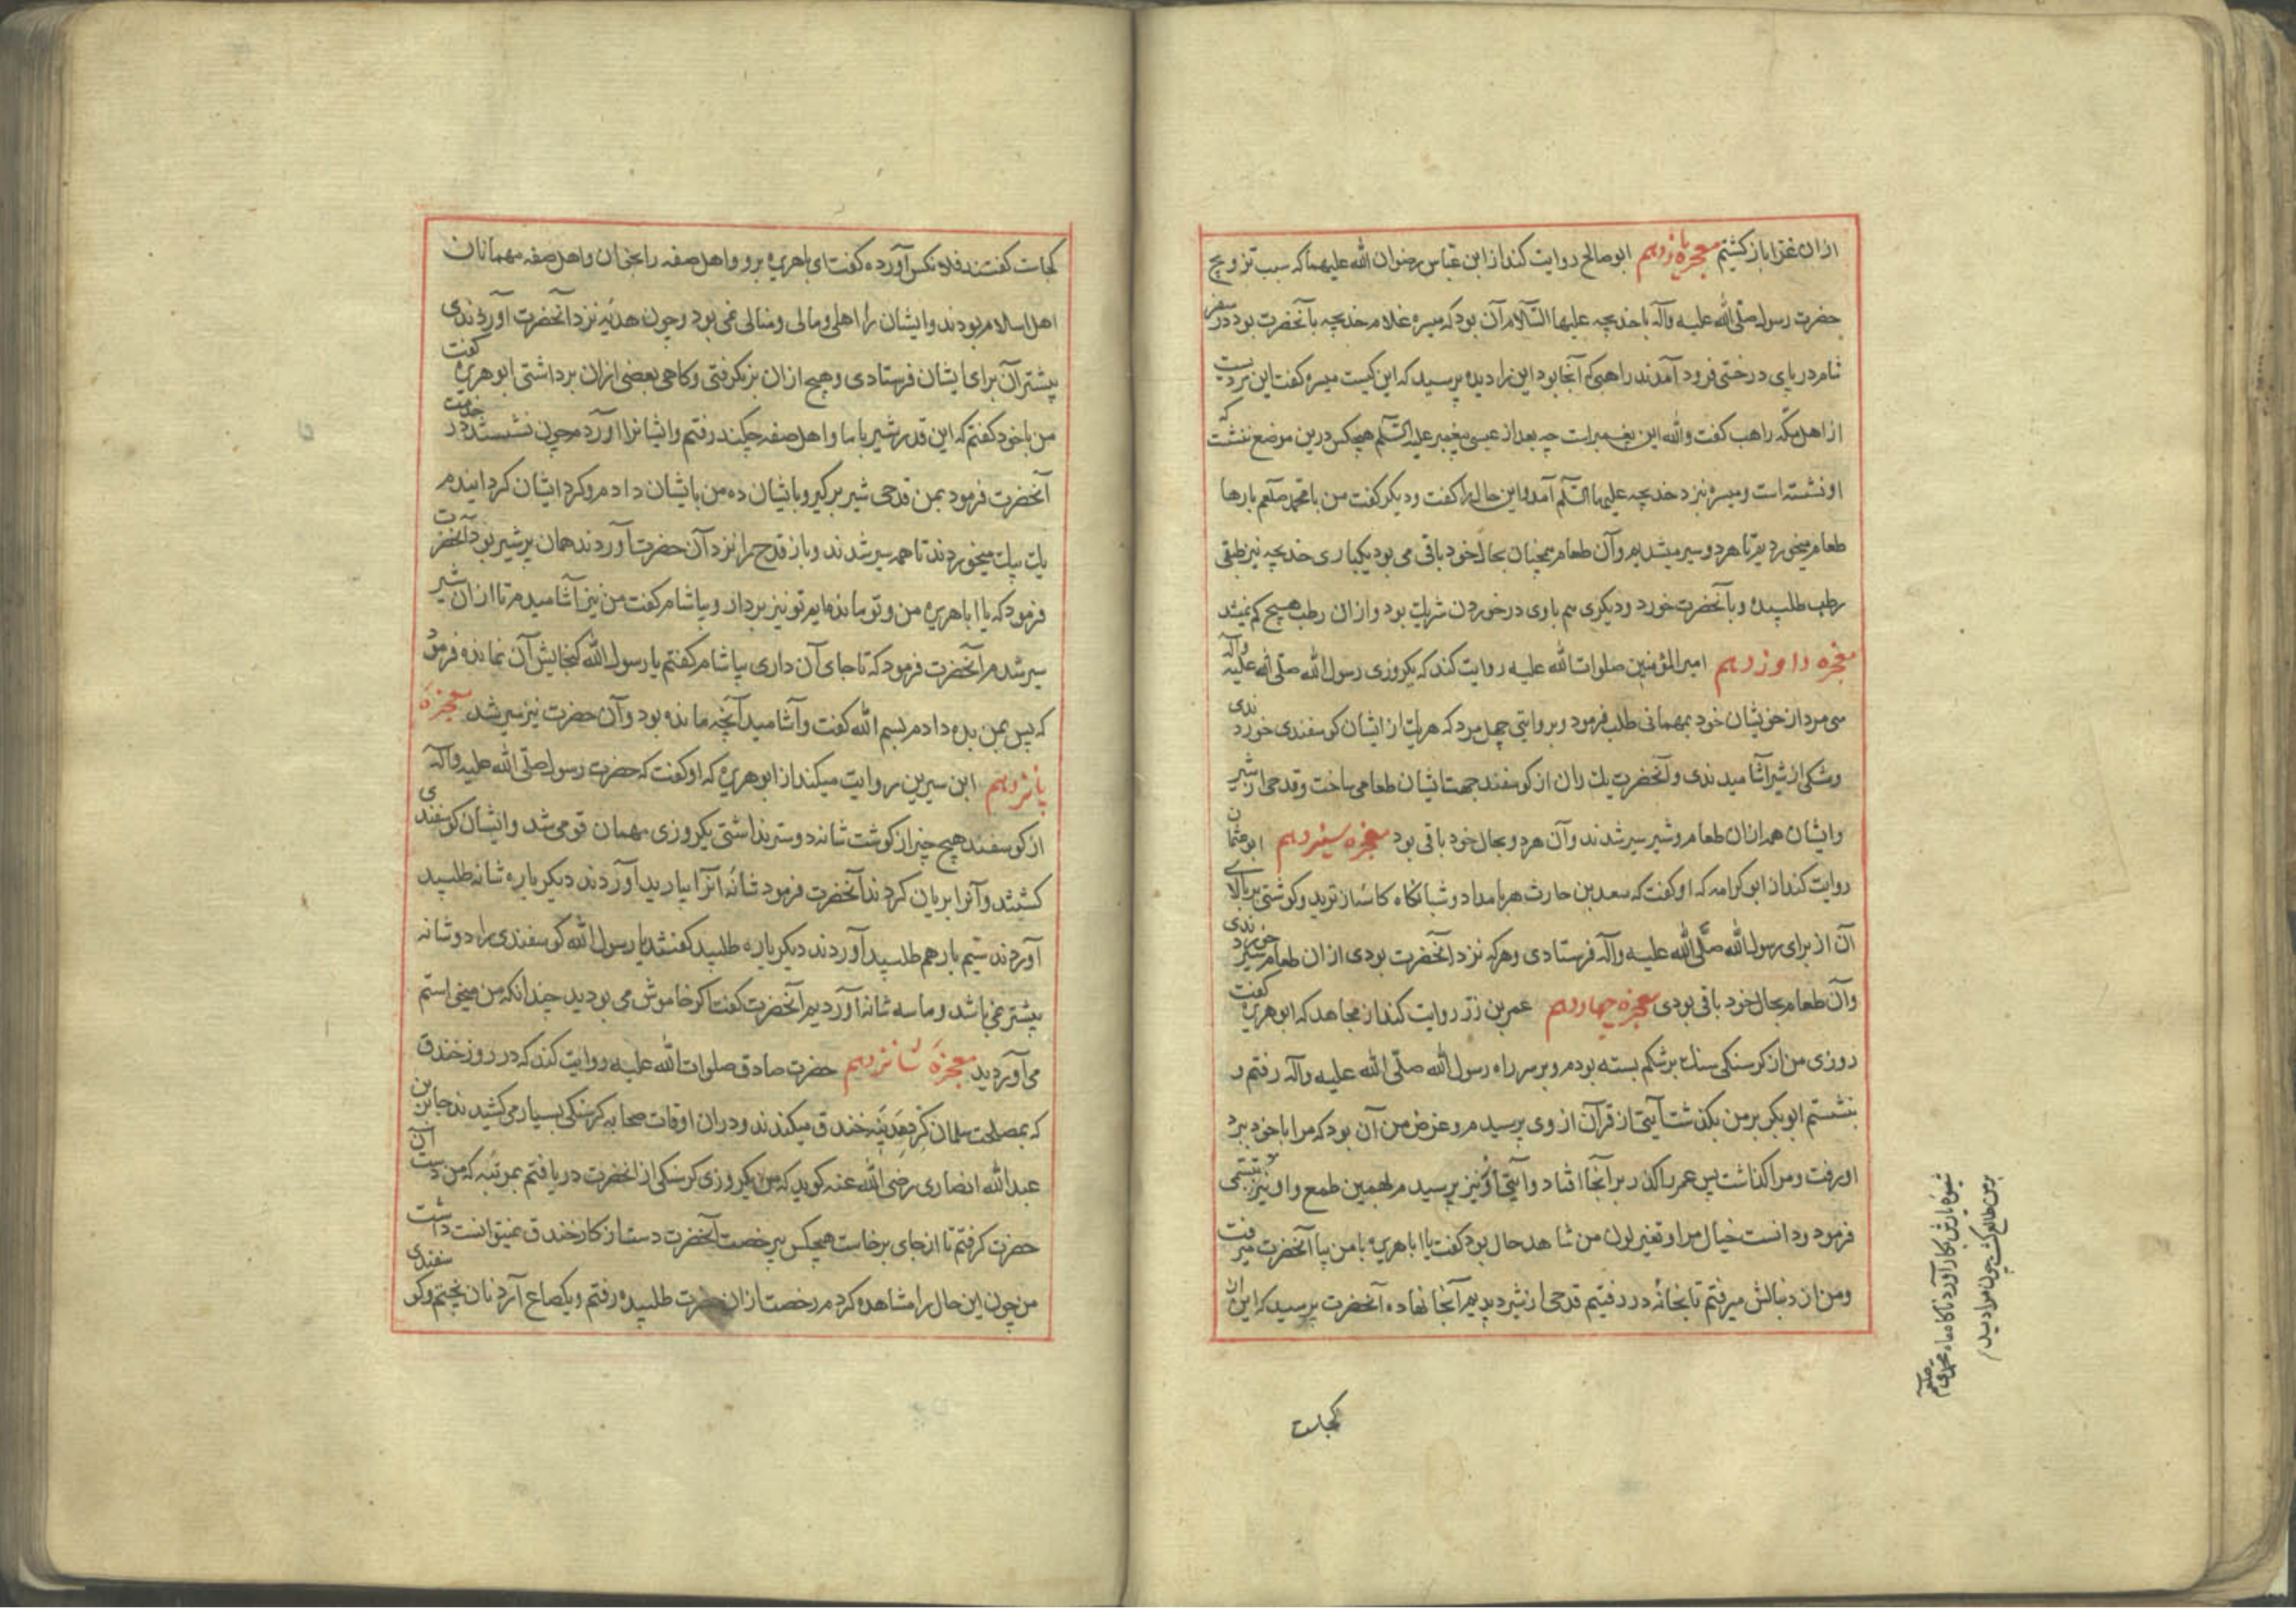 ازان غزا باز کشتیم معجزه یازدهم ابوصالح روایت کند از ابن عباس رضوان الله علیهما که سبب تزویج
حضرت رسول صلی الله علیه وآله با خدیجه علیها السّلام آن بود که میسره غلام خدیجه با آنحضرت بود در سفر
شام در پای درختی فرود آمدند راهبی که آنجا بود این را دیده پرسید که این کیست میسره کفت این مردیست
از اهل مکّه راهب کفت والله این پیغمبر است چه بعد از عیسی پیغمبر علیه السّلم هیچکس درین موضع ننشت که
او نشسته است و میسره نزد خدیجه علیها السّلم آمد واین حال را کفت ودیکر کفت من با محمد صلعم بارها
طعام میخوردیم تا هر دو سیر میشدیم وآن طعام همچنان بحال خود باقی می بود یکباری خدیجه نیز طبقی
رطب طلبیده و با آنحضرت خورد ودیکری هم باوی در خوردن شریک بود وازان رطب هیچ کم نمیشد
معجزه دوازدهم امیر المؤمنین صلوات الله علیه روایت کند که یکروزی رسول الله صلی الله علیه وآله
سی مرد از خویشان خود بمهمانی طلب فرمود وبروایتی چهل مرد که هر یک از ایشان کوسفندی خوردندی
ومشکی از شیر آشامیدندی وآنحضرت یک ران از کوسفند جهت ایشان طعام می ساخت وقدحی از شیر
وایشان همه ازان طعام وشیر سیر شدند وآن هر دو بحال خود باقی بود معجزه سیزدهم ابوعثمان
روایت کند از ابو کرامه که او کفت که سعد بن حارث هر بامداد وشبانکاه کاسهٔ از ترید وکوشتی بر بالای
آن از برای رسول الله صلّی الله علیه وآله فرستادی وهر که نزد آنحضرت بودی ازان طعام سیر خوردندی
وآن طعام بحال خود باقی بودی معجزه چهاردهم عمر بن زر روایت کند از مجاهد که ابو هریره کفت
روزی من از کرسنکی سنک بر شکم بسته بودم وبر سر راه رسول الله صلّی الله علیه وآله رفتم و
بنشستم ابوبکر بر من بکذشت آیتی از قرآن از وی پرسیدم وغرض من آن بود که مرا با خود ببرد
او برفت ومرا کذاشت پس عمر را کذر بر آنجا افتاد وآیتی ازو نیز پرسیدم لهمین طمع واو نیز
فرمود ودانست خیال مرا وتغیر لون من شاهد حال بود کفت یا اباهریره با من بیا آنحضرت میرفت
ومن از دنبالش میرفتم تا بخانه در رفتیم قدحی از شیر دیدیم آنجا نهاده آنحضرت پرسید که این از
کجاست
شیوهٔ یارش بکار آورد ناکاه ماه محمدی صلعم
بر من طالع کشت چون مرا دید
کجاست کفتند فلانکس آورده کفت ای باهریره برو واهل صفه را بخوان واهل صفه مهمانان
اهل اسلام بودند وایشان را اهلی ومالی ومنالی نمی بود وچون هدیه نزد آنحضرت آوردندی
پیشتر آن برای ایشان فرستادی وهیچ ازان بر نکرفتی وکاهی بعضی ازان برداشتی ابو هریره کفت
من با خود کفتم که این قدر شیر با ما واهل صفه چکند رفتم وایشانرا آوردم چون نشستند در خدمت
آنحضرت فرمود بمن قدحی شیر بر کیر وبایشان ده من بایشان دادم وکرد ایشان کردانیدم
یک بیک میخوردند تا همه سیر شدند وباز قدح را نزد آن حضرت آوردند همان پر شیر بود آنحضرت
فرمود که یا اباهریره من وتو مانده ایم تو نیز بردار وبیاشام کفت من نیز آشامیدم تا ازان شیر
سیر شدم آنحضرت فرمود که تا جای آن داری بیاشام کفتم یا رسول الله کنجایش آن نمانده فرمود
که پس بمن بده دادم بسم الله کفت وآشامید آنچه مانده بود وآن حضرت نیز سیر شد معجزهٔ
پانزدهم ابن سیرین روایت میکند از ابو هریره که او کفت که حضرت رسول صلّی الله علیه وآله
از کوسفند هیچ چیز از کوشت شانه دوستر نداشتی یکروزی مهمان قومی شد وایشان کوسفندی
کشتند وآنرا بریان کردند آنحضرت فرمود شانهٔ آنرا بیارید آوردند دیکر باره شانه طلبید
آوردند سیم بار هم طلبید آوردند دیکر باره طلبید کفتند یا رسول الله کوسفندی را دو شانه
بیشتر نمی باشد وما سه شانه آوردیم آنحضرت کفت اکر خاموش می بودید چندانکه من میخواستم
می آوردید معجزهٔ شانزدهم حضرت صادق صلوات الله علیه روایت کند که در روز خندق
که بمصلحت سلمان کرد مدینه خندق میکندند ودران اوقات صحابه کرسنکی بسیار می کشیدند جابر بن
عبدالله انصاری رضی الله عنه کوید که من یکروزی کرسنکی از آنحضرت دریافتم بمرتبه که من دست آن
حضرت کرفتم تا از جای برخاست هیچکس بی رخصت آنحضرت دست از کار خندق نمیتوانست داشت
من چون این حال را مشاهده کردم رخصت ازان حضرت طلبیده رفتم ویکصاع آرد نان پختم وکوسفندی